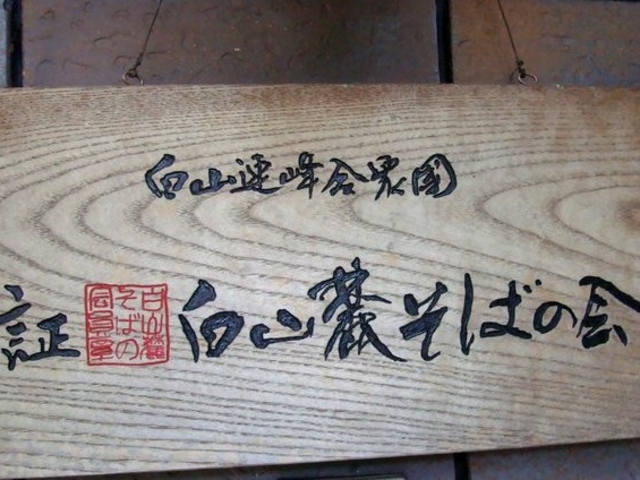 白山連峰合衆國
証 白山麓そばの会員章 白山麓そばの会